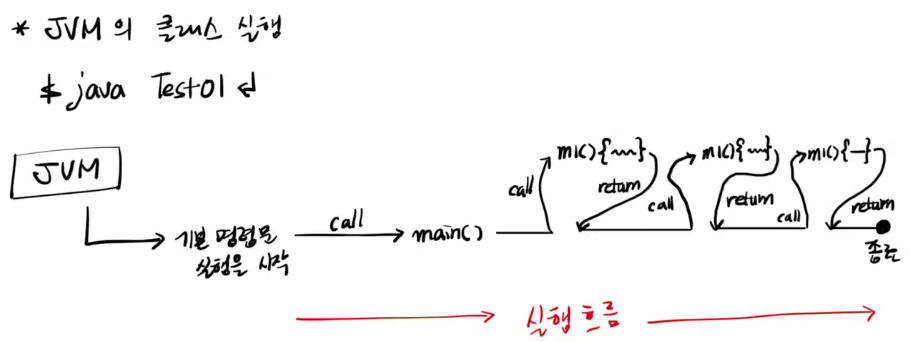 * JVM의 클래스 실행
$ java Test01 ↲
JVM
기본 명령문
실행을 시작
call
main()
call
m1(){~~}
return
call
m1(){~~}
return
call
m1(){—}
return
종료
실행 흐름